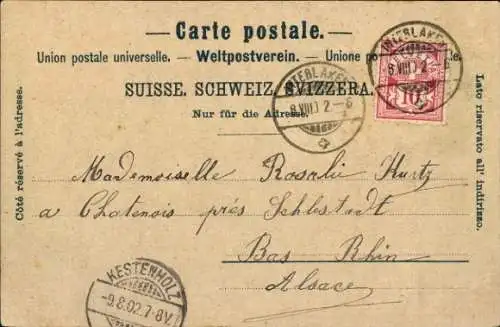 Carte postale.
Union postale universelle. — Weltpostverein. — Unione
SUISSE. SCHWEIZ. SVIZZERA.
Nur für die Adresse.
Côté réservé à l'adresse.
Lato riservato all' indirizzo.
INTERLAKEN
8.VIII.02-6
INTERLAKEN
8.VIII.02
10
Mademoiselle Rosalie Kurtz
a Chatenois près Schlestadt
Bas Rhin
Alsace
KESTENHOLZ
-9.8.02.7-8V.